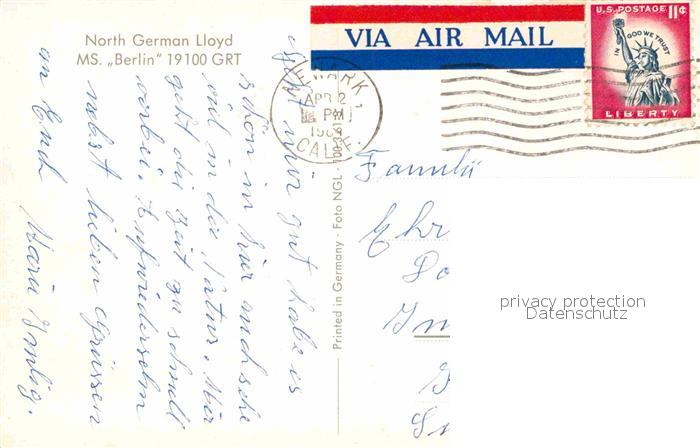 North German Lloyd
MS. „Berlin" 19100 GRT
VIA AIR MAIL
U.S. POSTAGE 11¢
IN GOD WE TRUST
LIBERTY
NEWARK
APR 2
PM
19
CALIF.
Printed in Germany - Foto NGL -
mir gut habe es
schön in hier auch sehe
viel in der Natur. Mir
geht die Zeit zu schnell
vorbei. Aufwiedersehn
nebst lieben Grüssen
an Euch
Familie
Ehr
privacy protection
Datenschutz